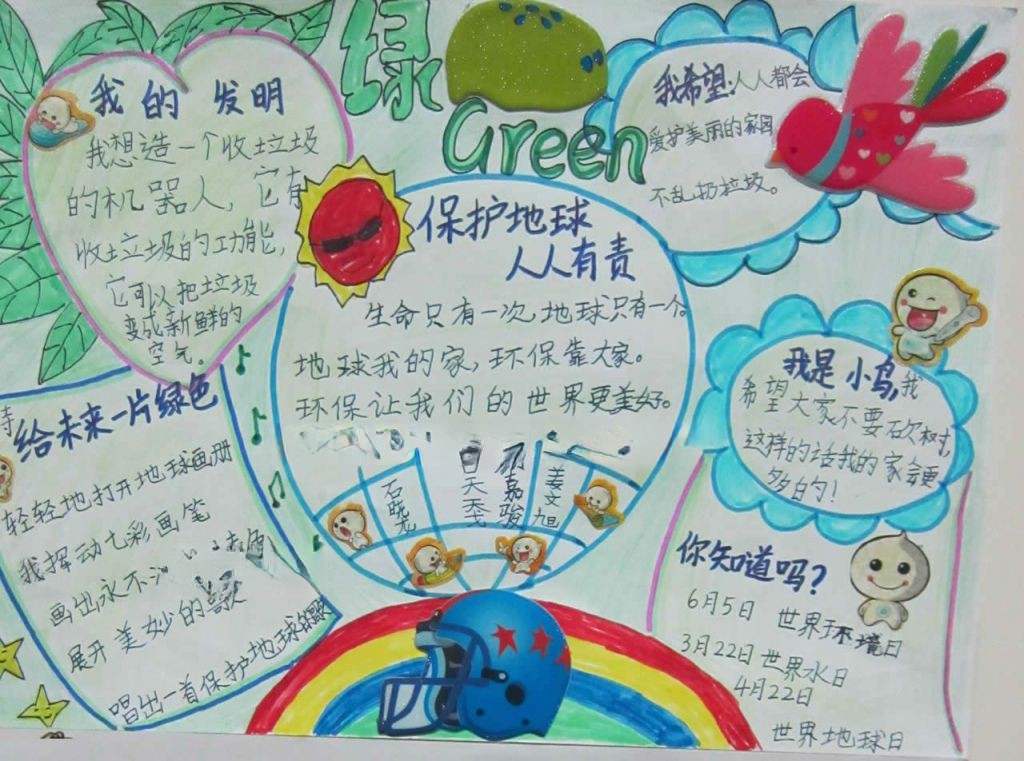 绿
Green
我的发明
我想造一个收垃圾
的机器人，它有
收垃圾的功能，
它可以把垃圾
变成新鲜的
空气。
我希望：人人都会
爱护美丽的家园
不乱扔垃圾。
保护地球
人人有责
生命只有一次地球只有一个。
地球我的家，环保靠大家。
环保让我们的世界更美好。
嘉骏
姜文旭
我是小鸟，我
希望大家不要砍树，
这样的话我的家会更
多的！
诗
给未来一片绿色
轻轻地打开地球画册
我挥动七彩画笔
画出永不
展开美妙的歌
唱出一首保护地球的歌
你知道吗？
6月5日 世界环境日
3月22日世界水日
4月22日
世界地球日